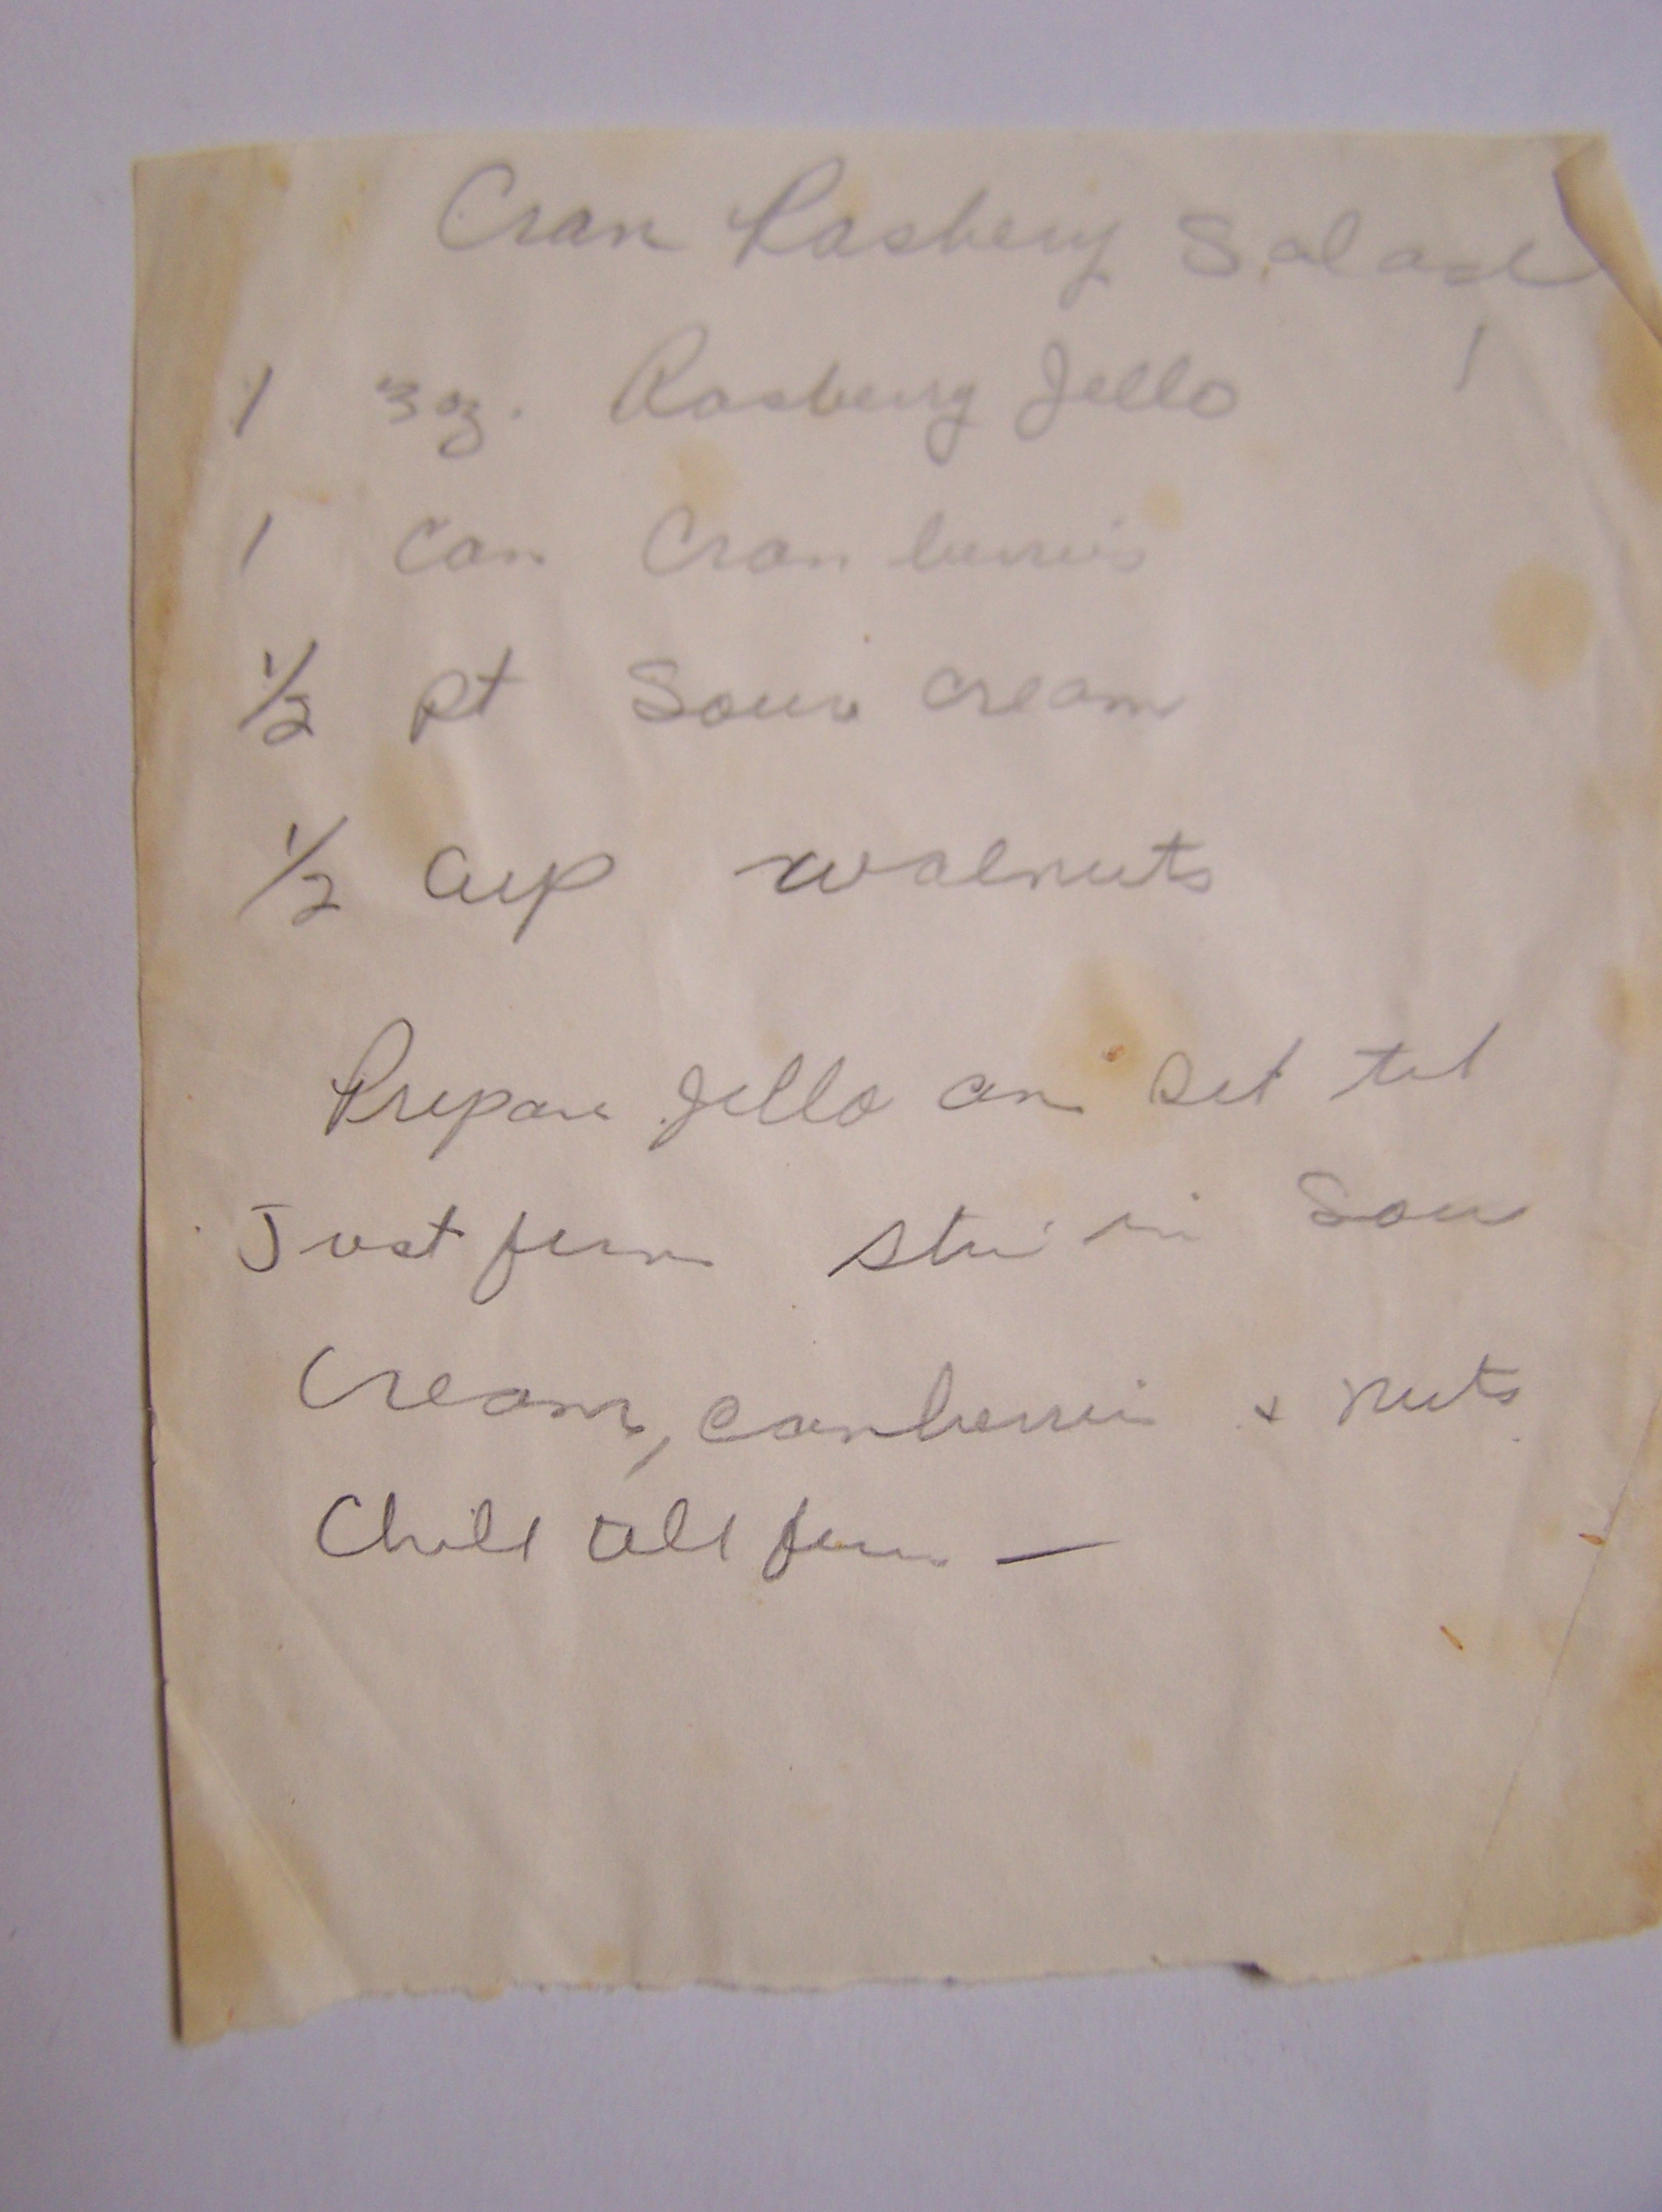 Cran Rasbery Salad
1 3 oz. Rasbery Jello
1 Can Cranberries
1/2 pt Sour cream
1/2 Cup walnuts
Prepare Jello an set til
Just firm stir in Sour
Cream, canberries + nuts
Chill till firm —